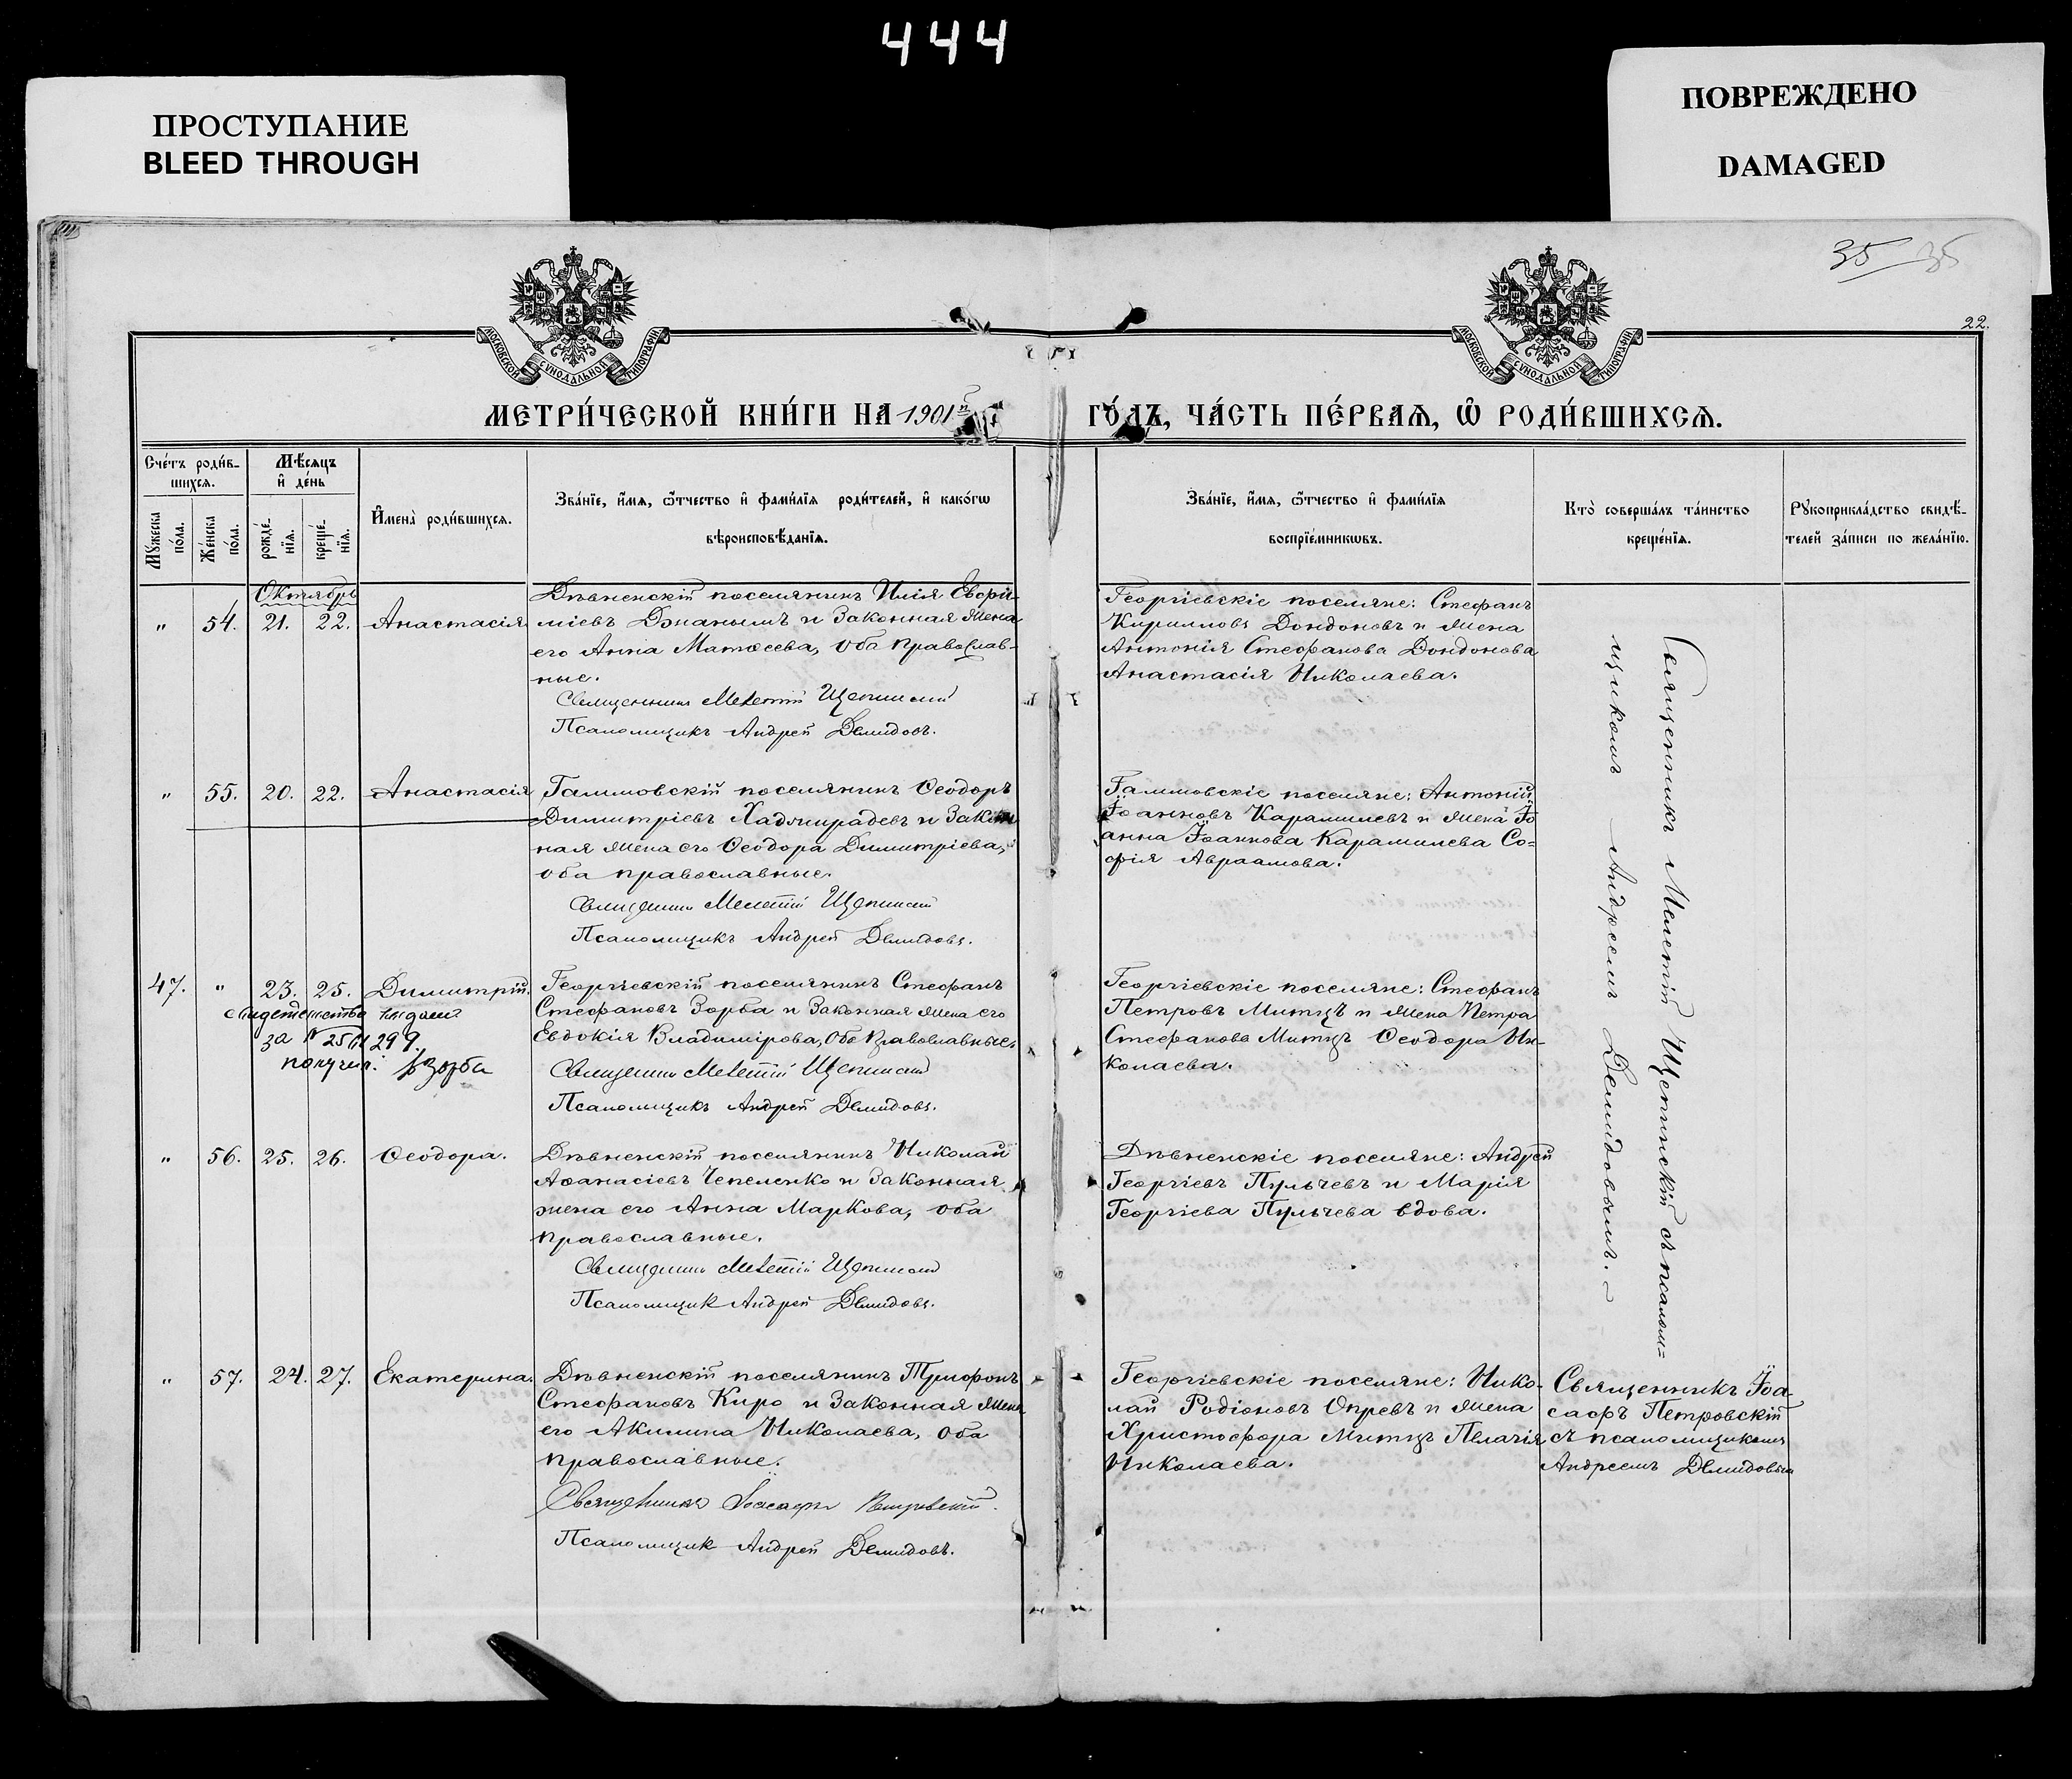 444
ПРОСТУПАНИЕ
BLEED THROUGH
ПОВРЕЖДЕНО
DAMAGED
35 35
22.
МОСКОВСКОЙ СѴНОДАЛЬНОЙ ТИПОГРАФІИ
МОСКОВСКОЙ СѴНОДАЛЬНОЙ ТИПОГРАФІИ
МЕТРИ́ЧЕСКОЙ КНИ́ГИ НА 1901й
ГО́ДЪ, ЧА́СТЬ ПЕ́РВАѦ, Ѽ РОДИ́ВШИХСѦ.
Сче́тъ роди́в-
шихсѧ.
Мꙋжеска по́ла.
Же́нска по́ла.
Мѣ́сѧцъ
и҆ де́нь
рожде́-
нїѧ.
креще́-
нїѧ.
И҆мена̀ роди́вшихсѧ.
Зва́нїе, и҆́мѧ, ѻ҆́тчество и҆ фами́лїѧ роди́телей, и҆ како́гѡ
вѣроисповѣ́данїѧ.
Зва́нїе, и҆́мѧ, ѻ҆́тчество и҆ фами́лїѧ
воспрїе́мникѡвъ.
Кто̀ соверша́лъ та́инство
креще́нїѧ.
Рꙋкоприкла́дство свидѣ́-
телей за́писи по жела́нїю.
Октябрь
" 54. 21. 22. Анастасія
Дѣвненскій поселянинъ Илія Евѳи-
міевъ Джанымъ и законная жена
его Анна Матѳеева, оба православ-
ные.
Священникъ Мелетій Щепинскій
Псаломщикъ Андрей Демидовъ.
Георгіевскіе поселяне: Стефанъ
Кирилловъ Дондоновъ и жена
Антонія Стефанова Дондонова
Анастасія Николаева.
" 55. 20. 22. Анастасія
поселянинъ Ѳеодоръ
Димитріевъ Хаджирадевъ и закон-
ная жена его Ѳеодора Димитріева,
оба православные.
Священникъ Мелетій Щепинскій
Псаломщикъ Андрей Демидовъ.
поселяне: Антоній
Іоанновъ Карамилевъ и жена Іо-
анна Іоаннова Карамилева Со-
фія Авраамова.
47. " 23. 25. Димитрій.
свидетельство выдано
за № 299.
получил: Зорба
Георгіевскій поселянинъ Стефанъ
Стефановъ Зорба и законная жена его
Евдокія Владимірова, оба православные.
Священникъ Мелетій Щепинскій
Псаломщикъ Андрей Демидовъ.
Георгіевскіе поселяне: Стефанъ
Петровъ Митцъ и жена Петра
Стефанова Митцъ Ѳеодора Ни-
колаева.
" 56. 25. 26. Ѳеодора.
Дѣвненскій поселянинъ Николай
Аѳанасіевъ Чепеленко и законная
жена его Анна Маркова, оба
православные.
Священникъ Мелетій Щепинскій
Псаломщик Андрей Демидовъ.
Дѣвненскіе поселяне: Андрей
Георгіевъ Пульчевъ и Марія
Георгіева Пульчева вдова.
Священникъ Мелетій Щепинскій съ псалом-
щикомъ Андреемъ Демидовымъ.
" 57. 24. 27. Екатерина.
Дѣвненскій поселянинъ Трифонъ
Стефановъ Киро и законная жена
его Акилина Николаева, оба
православные.
Священникъ Іоасафъ Петровскій.
Псаломщик Андрей Демидовъ.
Георгіевскіе поселяне: Нико-
лай Родіоновъ и жена
Христофора Митцъ Пелагія
Николаева.
Священникъ Іоа-
сафъ Петровскій
съ псаломщикомъ
Андреемъ Демидовымъ